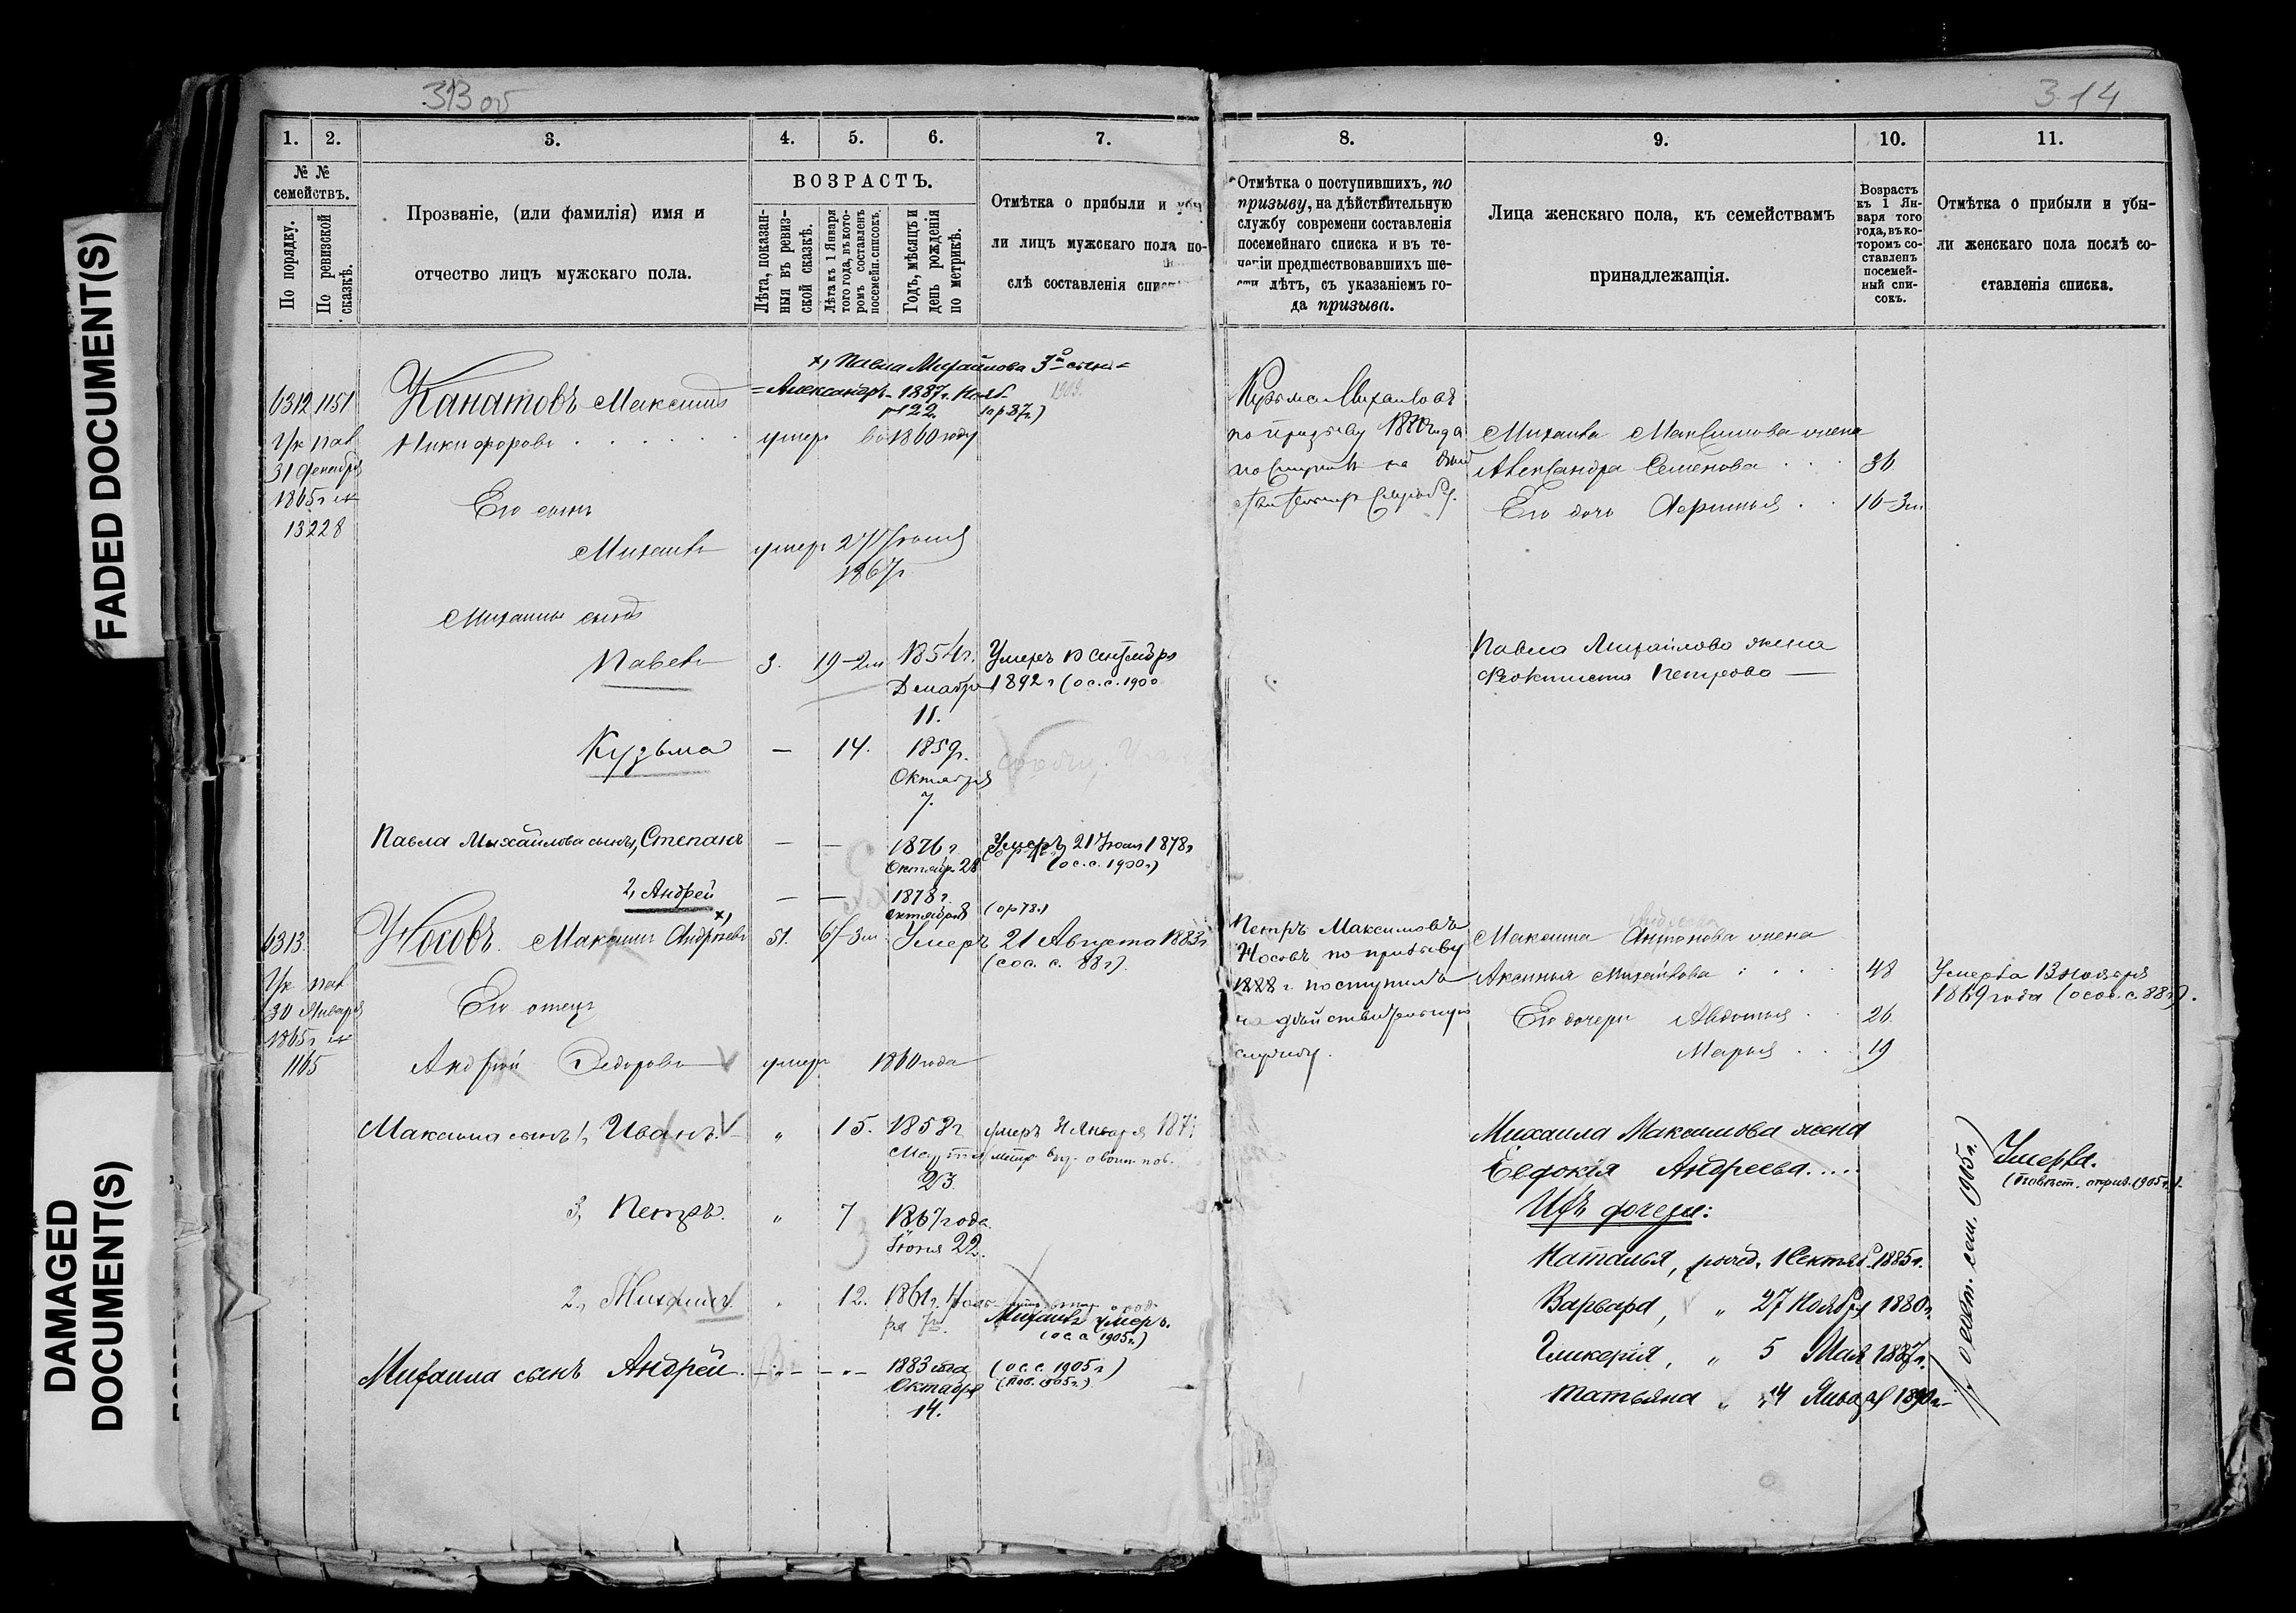 313 об
314
1.
2.
3.
4.
5.
6.
7.
8.
9.
10.
11.
№ №
семействъ.
По порядку.
По ревизской
сказкѣ.
Прозваніе, (или фамилія) имя и
отчество лицъ мужскаго пола.
ВОЗРАСТЪ.
Лѣта, показан-
ныя въ ревиз-
ской сказкѣ.
Лѣта къ 1 Января
того года, въ кото-
ромъ составленъ
посемейн. списокъ.
Годъ, мѣсяцъ и
день рожденія
по метрикѣ.
Отмѣтка о прибыли и убы
ли лицъ мужскаго пола по-
слѣ составленія
Отмѣтка о поступившихъ, по
призыву, на дѣйствительную
службу современи составленія
посемейнаго списка и въ те-
ченіи предшествовавшихъ ше-
сти лѣтъ, съ указаніемъ го-
да призыва.
Лица женскаго пола, къ семействамъ
принадлежащія.
Возрастъ
къ 1 Ян-
варя того
года, въ ко-
торомъ со-
ставленъ
посемей-
ный спи-
сокъ.
Отмѣтка о прибыли и убы-
ли женскаго пола послѣ со-
ставленія списка.
х, Павла Михайлова 3й сынъ =
= Александръ 1887 г. Нояб
22. (ор 87 г.)
1909.
6312 1151
Канатовъ Максимъ
Никифоровъ
умеръ во 1860 году
31 Декабря
1865 г
13228
Его сынъ
Михаилъ умеръ 27 Іюня
1867 г
Михаилы сынъ
Павелъ 3. 19-2м 1854 г. Умеръ 13 Сентября
Декабря 1892 г (ос. с. 1900
11.
Кузьма — 14. 1859 г.
Октября
7.
Павла Михайлова сынъ, Степанъ — — 1876 г. Умеръ 21 Іюля 1878 г
Октября 28 (ос. с. 1900 г.)
2, Андрей — — 1878 г.
октября 8 (ор 78 г.)
Кузьма Михаиловъ
по призыву 1880 года
Михаила Максимова жена
Александра Семенова 36
Его дочь 16-3м
Павла Михайлова жена
Феоктиста Петрова —
6313.
Носовъ. Максимъ Андреевъ х, 51. 61-3м Умеръ 21 Августа 1883 г
(сос. с. 88 г)
30 Января
1865 г
1165
Его отецъ
Андрей Федоровъ умеръ 1860 года
Максима сынъ 1, Иванъ. „ 15. 1858 г умеръ 21 Января
23
3, Петръ. „ 7 1867 года
Іюня 22.
2., Михаилъ 12. 1861 г. Нояб-
ря
Михаилъ умеръ.
(ос. с. 1905 г.)
Михаила сынъ Андрей. — „ — — „ — 1883 года (ос. с. 1905 г.)
Октября (пов. 1905 г.)
14.
Петръ Максимовъ
Носовъ по призыву
1888 г. поступилъ
на дѣйствительную
службу.
Андреева
Максима Антонова жена
Аксинья Михайлова 48
Умерла 13 ноября
1869 года (осос. с. 88 г).
Его дочери Авдотья 26
Марья 19
Михаила Максимова жена
Евдокія Андреева.....
Умерла.
Ихъ дочери:
Наталья, рожд. 1 Сентяб. 1885 г.
Варвара, „ 27 Ноября 1880 г.
Гликерія, „ 5 Мая 1887 г.
Татьяна „ 14 Января 1890 г.
FADED DOCUMENT(S)
DAMAGED
DOCUMENT(S)